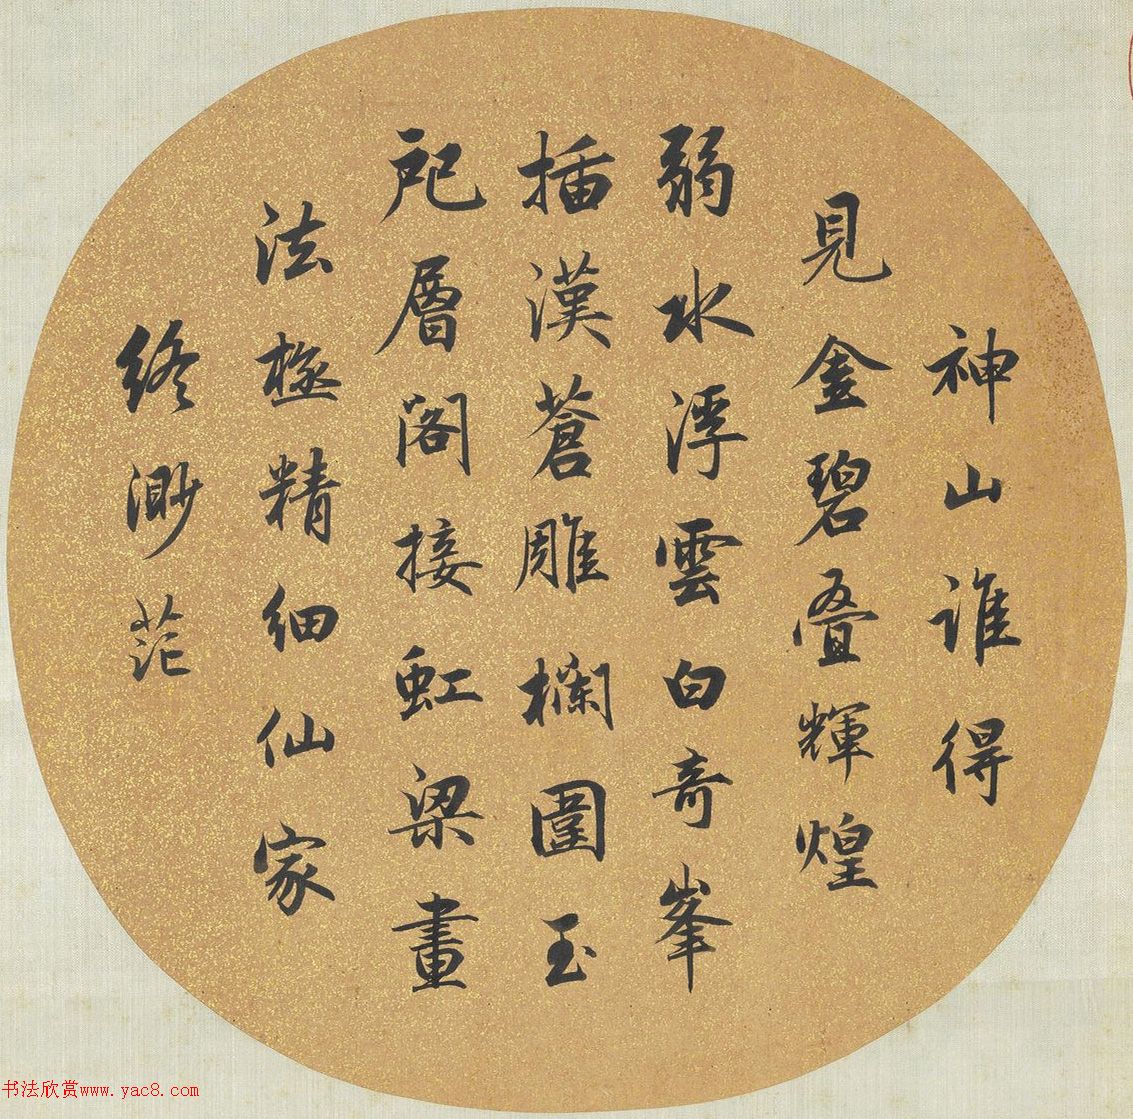 神山谁得
見金碧叠輝煌
弱水浮雲白奇峯
插漢蒼雕欄圍玉
戺層閣接虹梁畫
法極精細仙家
終渺茫
书法欣赏www.yac8.com